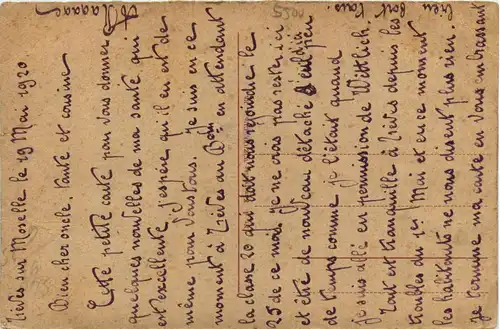 Trèves sur Moselle le 19 Mai 1920
Bien cher oncle, tante et cousine
Cette petite carte pour vous donner
quelques nouvelles de ma santé qui
est excellente, j'espère qu'il en est de
même pour vous tous. Je suis en ce
moment à Trèves au Bon en attendant
la classe 20 qui doit nous rejoindre le
25 de ce mois. Je ne crois pas rester ici
et être de nouveau détaché d'ici peu
de temps comme je l'étais quand
je suis allé en permission de Wittlich.
Tout est tranquille à Trèves depuis les
troubles du 1er Mai et en ce moment
les habitants ne nous disent plus rien.
Je termine ma carte en vous embrassant
bien fort tous.